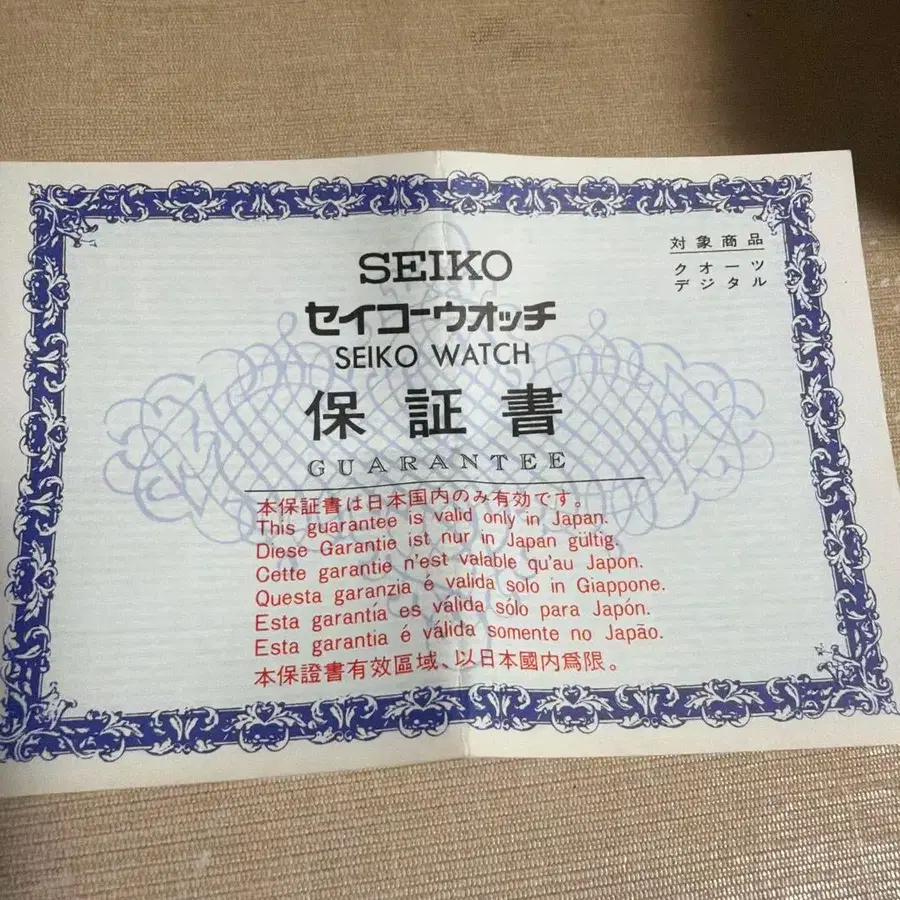 対象商品
クオーツ
デジタル
SEIKO
セイコーウオッチ
SEIKO WATCH
保証書
GUARANTEE
本保証書は日本国内のみ有効です。
This guarantee is valid only in Japan.
Diese Garantie ist nur in Japan gültig.
Cette garantie n'est valable qu'au Japon.
Questa garanzia é valida solo in Giappone.
Esta garantía es válida sólo para Japón.
Esta garantia é válida somente no Japão.
本保證書有效區域、以日本國内爲限。